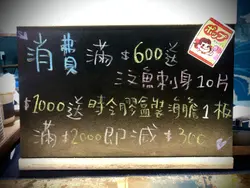 ポップ
消費滿$600送
三文魚刺身10片
$1000送時令膠盒裝海膽1板
滿$2000即減$300